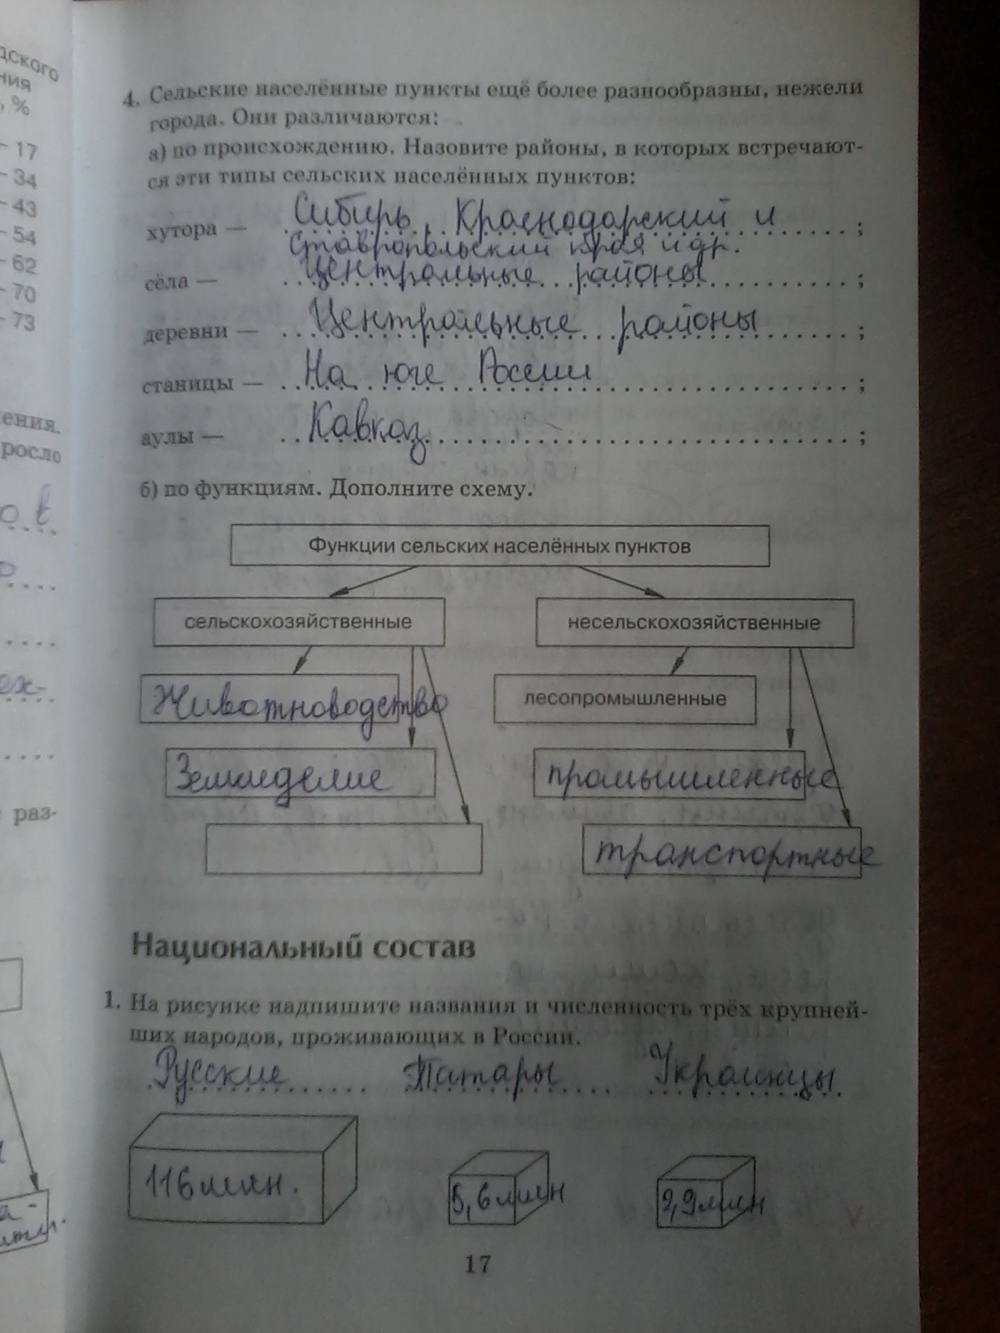 дского
ния
, %
– 17
– 34
– 43
– 54
– 62
– 70
– 73
ения.
росло
о в
ех-
раз-
4. Сельские населённые пункты ещё более разнообразны, нежели
города. Они различаются:
а) по происхождению. Назовите районы, в которых встречают-
ся эти типы сельских населённых пунктов:
хутора — Сибирь, Краснодарский и ;
Ставропольский края и др.
сёла — Центральные районы ;
деревни — Центральные районы ;
станицы — На юге России ;
аулы — Кавказ ;
б) по функциям. Дополните схему.
Функции сельских населённых пунктов
сельскохозяйственные несельскохозяйственные
Животноводство лесопромышленные
Земледелие промышленные
транспортные
Национальный состав
1. На рисунке надпишите названия и численность трёх крупней-
ших народов, проживающих в России.
Русские Татары Украинцы
116 млн. 5,6 млн 2,9 млн
17